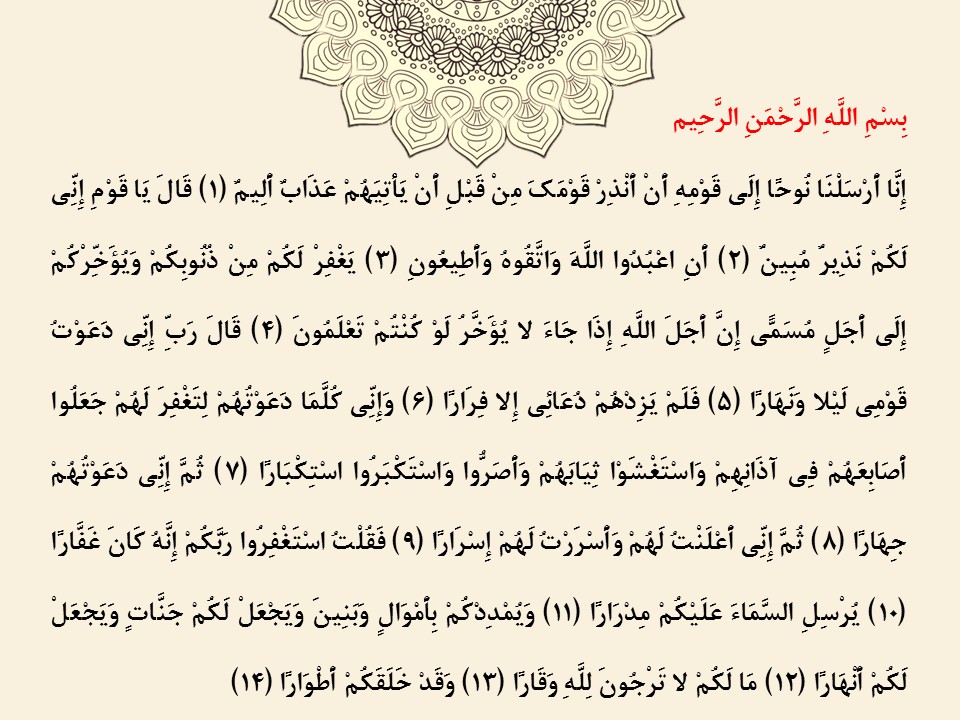 بِسْمِ اللَّهِ الرَّحْمَنِ الرَّحِیم
إِنَّا أَرْسَلْنَا نُوحًا إِلَى قَوْمِهِ أَنْ أَنْذِرْ قَوْمَکَ مِنْ قَبْلِ أَنْ یَأْتِیَهُمْ عَذَابٌ أَلِیمٌ (۱) قَالَ یَا قَوْمِ إِنِّی
لَکُمْ نَذِیرٌ مُبِینٌ (۲) أَنِ اعْبُدُوا اللَّهَ وَاتَّقُوهُ وَأَطِیعُونِ (۳) یَغْفِرْ لَکُمْ مِنْ ذُنُوبِکُمْ وَیُؤَخِّرْکُمْ
إِلَى أَجَلٍ مُسَمًّى إِنَّ أَجَلَ اللَّهِ إِذَا جَاءَ لا یُؤَخَّرُ لَوْ کُنْتُمْ تَعْلَمُونَ (۴) قَالَ رَبِّ إِنِّی دَعَوْتُ
قَوْمِی لَیْلا وَنَهَارًا (۵) فَلَمْ یَزِدْهُمْ دُعَائِی إِلا فِرَارًا (۶) وَإِنِّی کُلَّمَا دَعَوْتُهُمْ لِتَغْفِرَ لَهُمْ جَعَلُوا
أَصَابِعَهُمْ فِی آذَانِهِمْ وَاسْتَغْشَوْا ثِیَابَهُمْ وَأَصَرُّوا وَاسْتَکْبَرُوا اسْتِکْبَارًا (۷) ثُمَّ إِنِّی دَعَوْتُهُمْ
جِهَارًا (۸) ثُمَّ إِنِّی أَعْلَنْتُ لَهُمْ وَأَسْرَرْتُ لَهُمْ إِسْرَارًا (۹) فَقُلْتُ اسْتَغْفِرُوا رَبَّکُمْ إِنَّهُ کَانَ غَفَّارًا
(۱۰) یُرْسِلِ السَّمَاءَ عَلَیْکُمْ مِدْرَارًا (۱۱) وَیُمْدِدْکُمْ بِأَمْوَالٍ وَبَنِینَ وَیَجْعَلْ لَکُمْ جَنَّاتٍ وَیَجْعَلْ
لَکُمْ أَنْهَارًا (۱۲) مَا لَکُمْ لا تَرْجُونَ لِلَّهِ وَقَارًا (۱۳) وَقَدْ خَلَقَکُمْ أَطْوَارًا (۱۴)